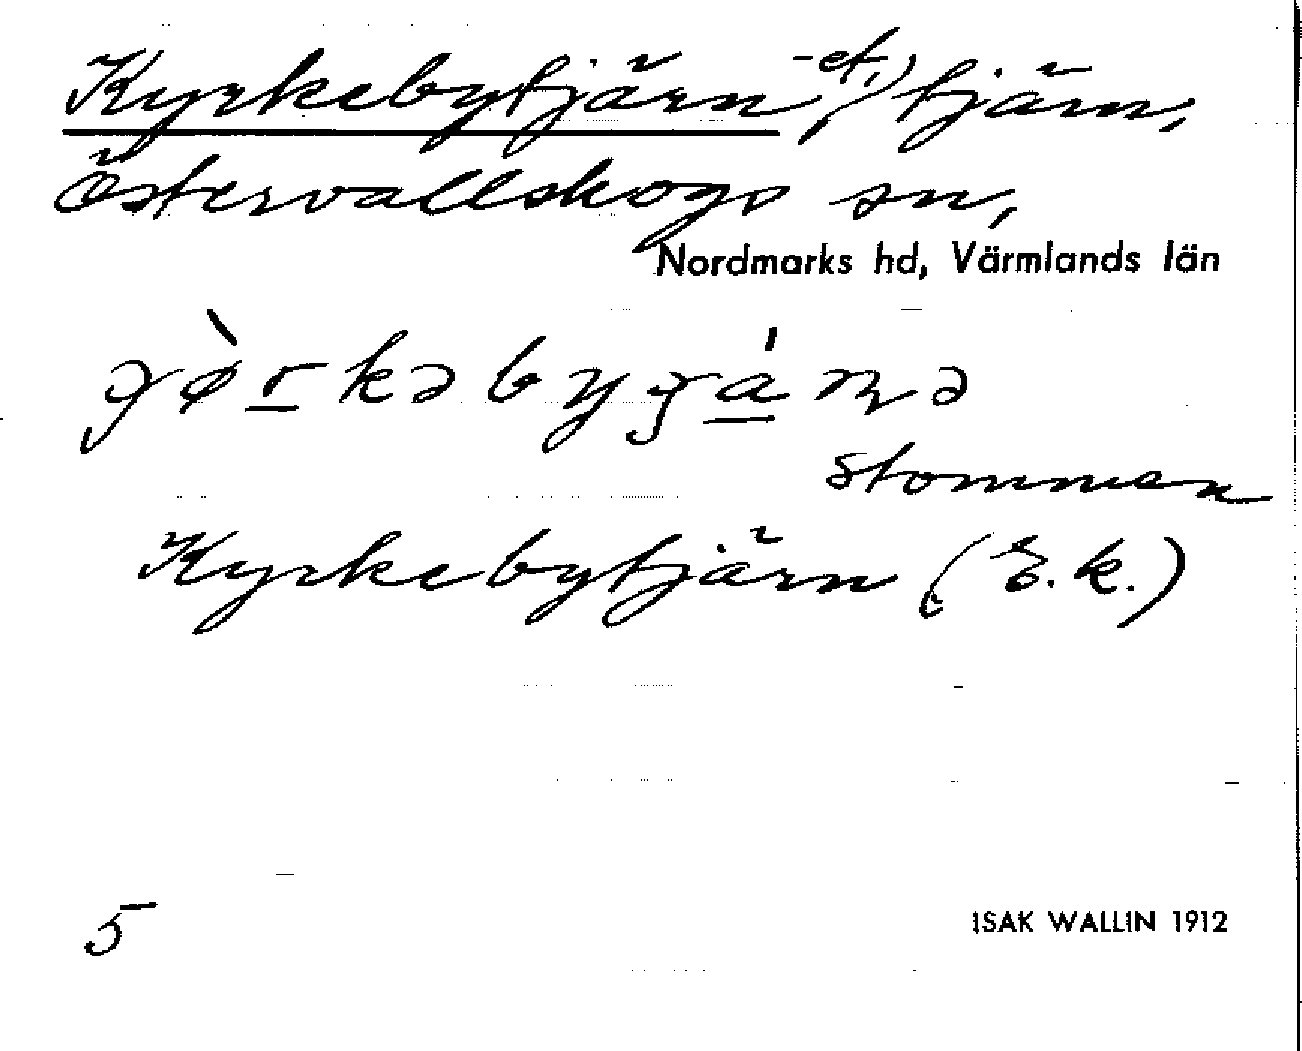 Kyrkebytjärn, -et, tjärn,
Östervallskogs sn,
Nordmarks hd, Värmlands län
stommen
Kyrkebytjärn (E.k.)
5
ISAK WALLIN 1912